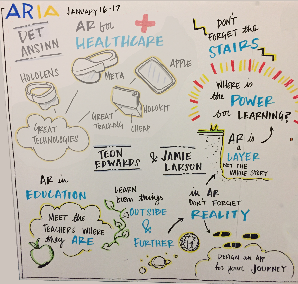 ARIA JANUARY 16-17
DET
ANSINN
AR for
HEALTHCARE
HOLOLENS
META
APPLE
HOLOKIT
GREAT TRACKING
CHEAP
GREAT
TECHNOLOGIES
DON'T
FORGET the
STAIRS
WHERE is
the POWER
for LEARNING?
TEON
EDWARDS
&
JAMIE
LARSON
AR is
a
LAYER
NOT the
WHOLE STORY
AR in
EDUCATION
MEET the
TEACHERS WHERE
they ARE
LEARN
from things
OUTSIDE
&
FURTHER
in AR
DON'T FORGET
REALITY
DESIGN an APP
for your JOURNEY